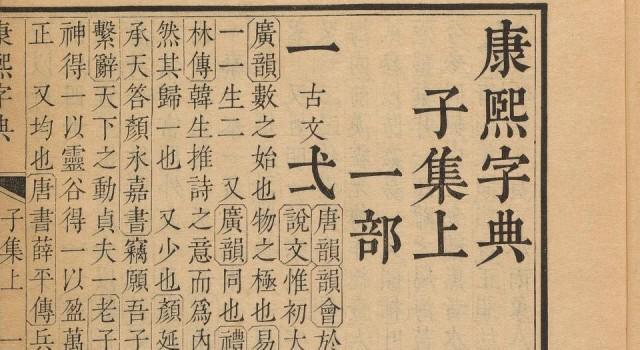 康熙字典
子集上
一部
一 古文弌 唐韻韻會於
說文惟初大
廣韻數之始也物之極也易
一一生二 又廣韻同也禮
林傳韓生推詩之意而爲內
然其歸一也 又少也顏延
承天答顏永嘉書竊願吾子
繫辭天下之動貞夫一老子
神得一以靈谷得一以盈萬
正 又均也唐書薛平傳兵
康熙字典 子集上 一